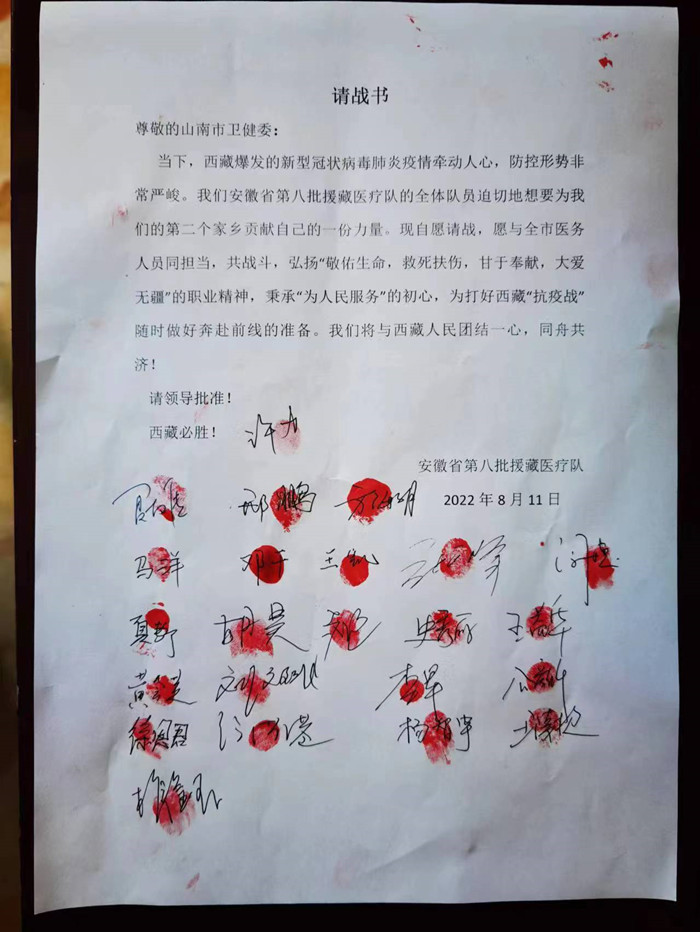 请战书
尊敬的山南市卫健委：
当下，西藏爆发的新型冠状病毒肺炎疫情牵动人心，防控形势非
常严峻。我们安徽省第八批援藏医疗队的全体队员迫切地想要为我
们的第二个家乡贡献自己的一份力量。现自愿请战，愿与全市医务
人员同担当，共战斗，弘扬“敬佑生命，救死扶伤，甘于奉献，大爱
无疆”的职业精神，秉承“为人民服务”的初心，为打好西藏“抗疫战”
随时做好奔赴前线的准备。我们将与西藏人民团结一心，同舟共
济！
请领导批准！
西藏必胜！
安徽省第八批援藏医疗队
2022 年 8 月 11 日
马祥 邓干 王凯
夏野 胡昊